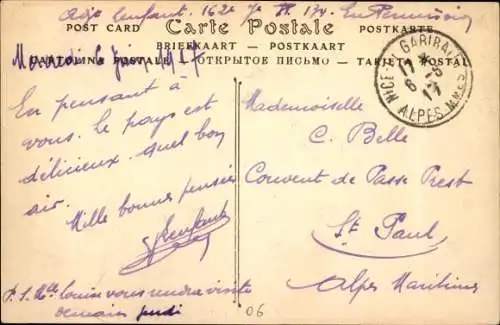 Adjt Lenfant. 162e 7e
Carte Postale
POST CARD
POSTKARTE
BRIEFKAART - POSTKAART
CARTOLINA POSTALE - ОТКРЫТОЕ ПИСЬМО - TARJETA POSTAL
Mercredi 6 juin 1917
NICE GARIBALDI
17
6 - 6
17
ALPES MMES
En pensant à
vous. Le pays est
délicieux. quel bon
air.
Mille bonnes pensées
Lenfant
P.S. Mlle Louise vous rendra visite
demain jeudi
Mademoiselle
C. Belle
Couvent de Passe Prest
St Paul
Alpes Maritimes
06